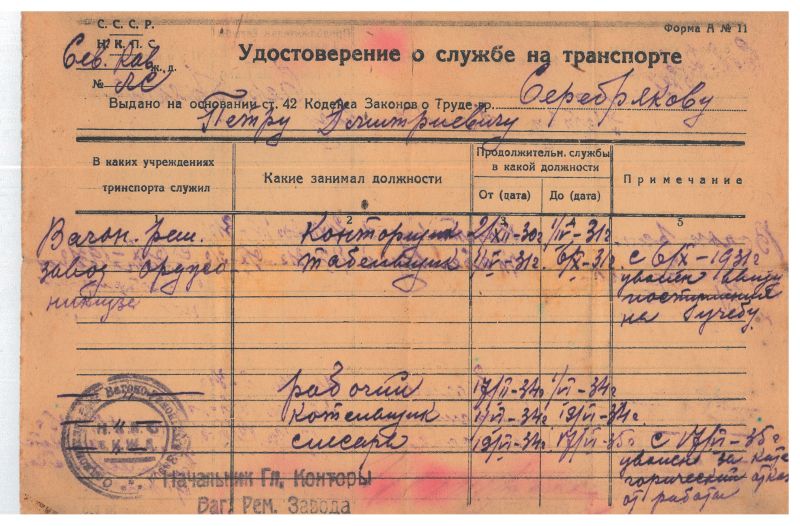 С. С. С. Р.
Н. К. П. С.
Сев. Кав. ж. д.
№ ЛС
Форма А № 11
Удостоверение о службе на транспорте
Выдано на основании ст. 42 Кодекса Законов о Труде гр. Серебрякову
Петру Дмитриевичу
В каких учреждениях транспорта служил
Какие занимал должности
Продолжительн. службы в какой должности
От (дата)
До (дата)
Примечание
2 3 4 5
Вагон. Рем. Конторщик 2/XII-30г 1/II-31г
завод Орджо Табельщик 1/II-31г 6/X-31г с 6/X-1931г
никидзе уволен ввиду
поступления
на учебу
рабочий 17/II-34г 1/VI-34г
Котельщик 1/VI-34г 19/VI-34г
слесарь 19/VI-34г 17/VI-35г с 17/VI-35г
уволен за кате
горический отказ
от работы
Начальник Гл. Конторы
Ваг. Рем. Завода